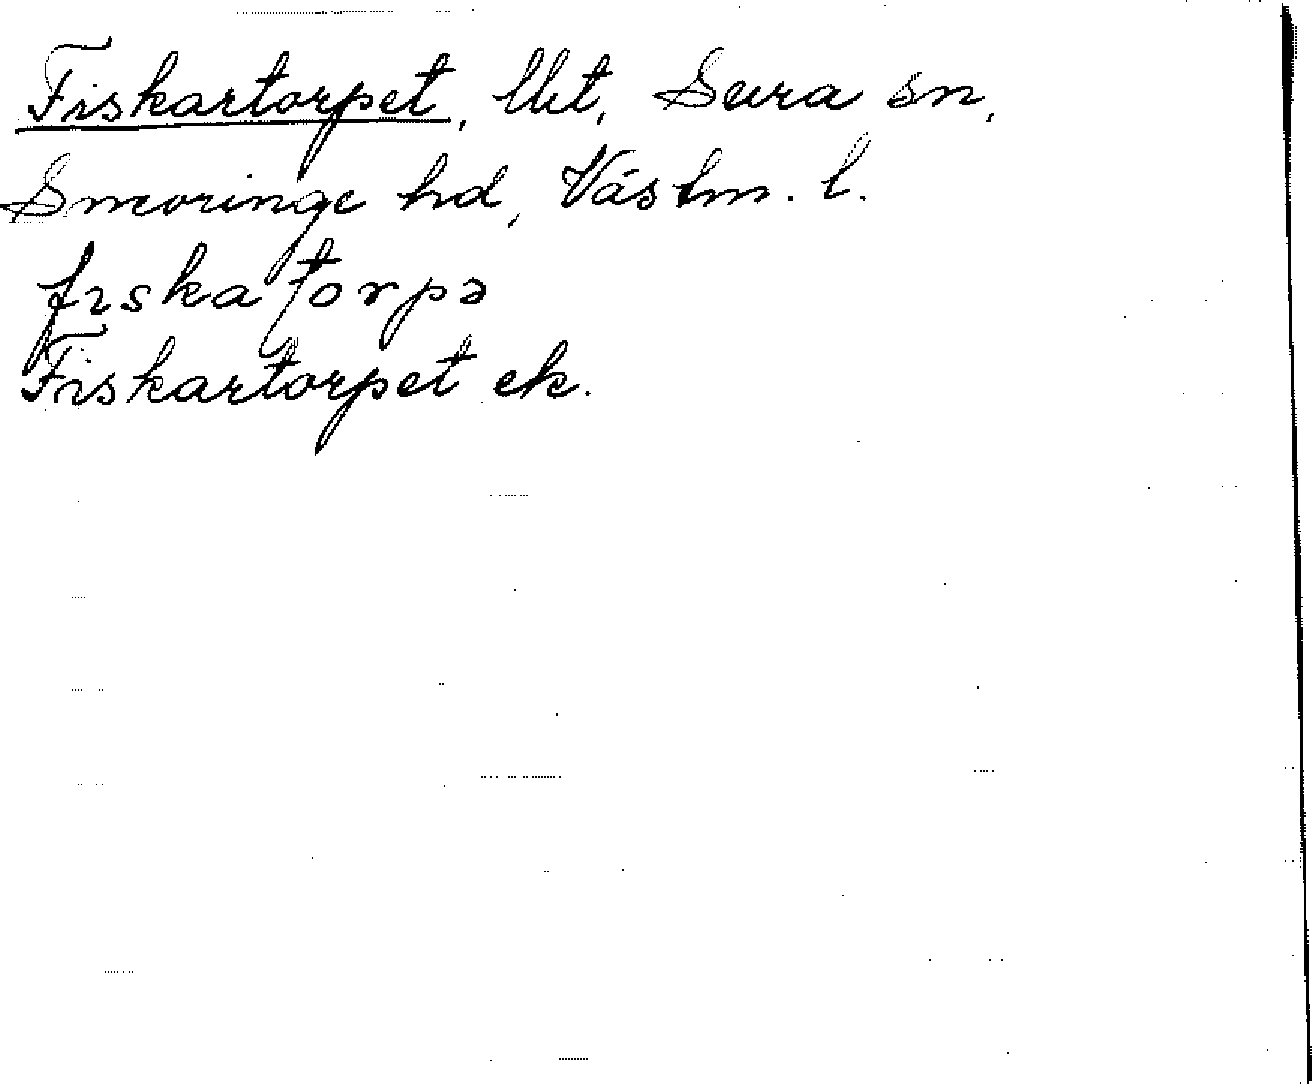 Fiskartorpet, llht, Sura sn,
Snevringe hd, Västm. l.
fiskatorpə
Fiskartorpet ek.